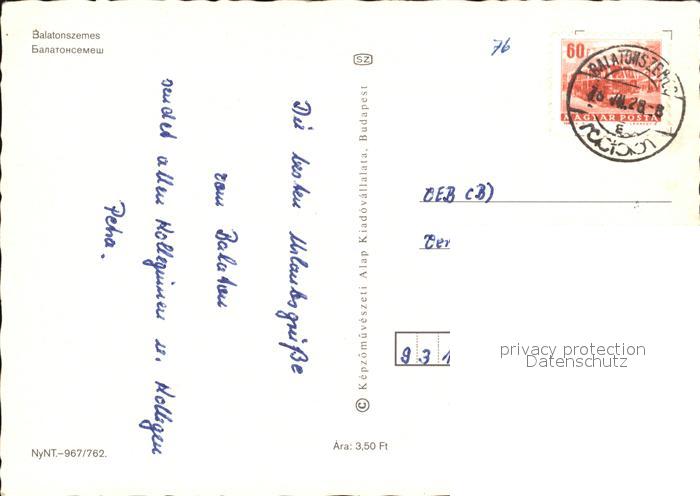 Balatonszemes
Балатонсемеш
Die besten Urlaubsgrüße
vom Balaton
sendet allen Kolleginnen u. Kollegen
Petra.
SZ
© Képzőművészeti Alap Kiadóvállalata, Budapest
76
60
MAGYAR POSTA
BALATONSZEMES
E
DEB (B)
931
privacy protection
Datenschutz
NyNT.–967/762.
Ára: 3,50 Ft